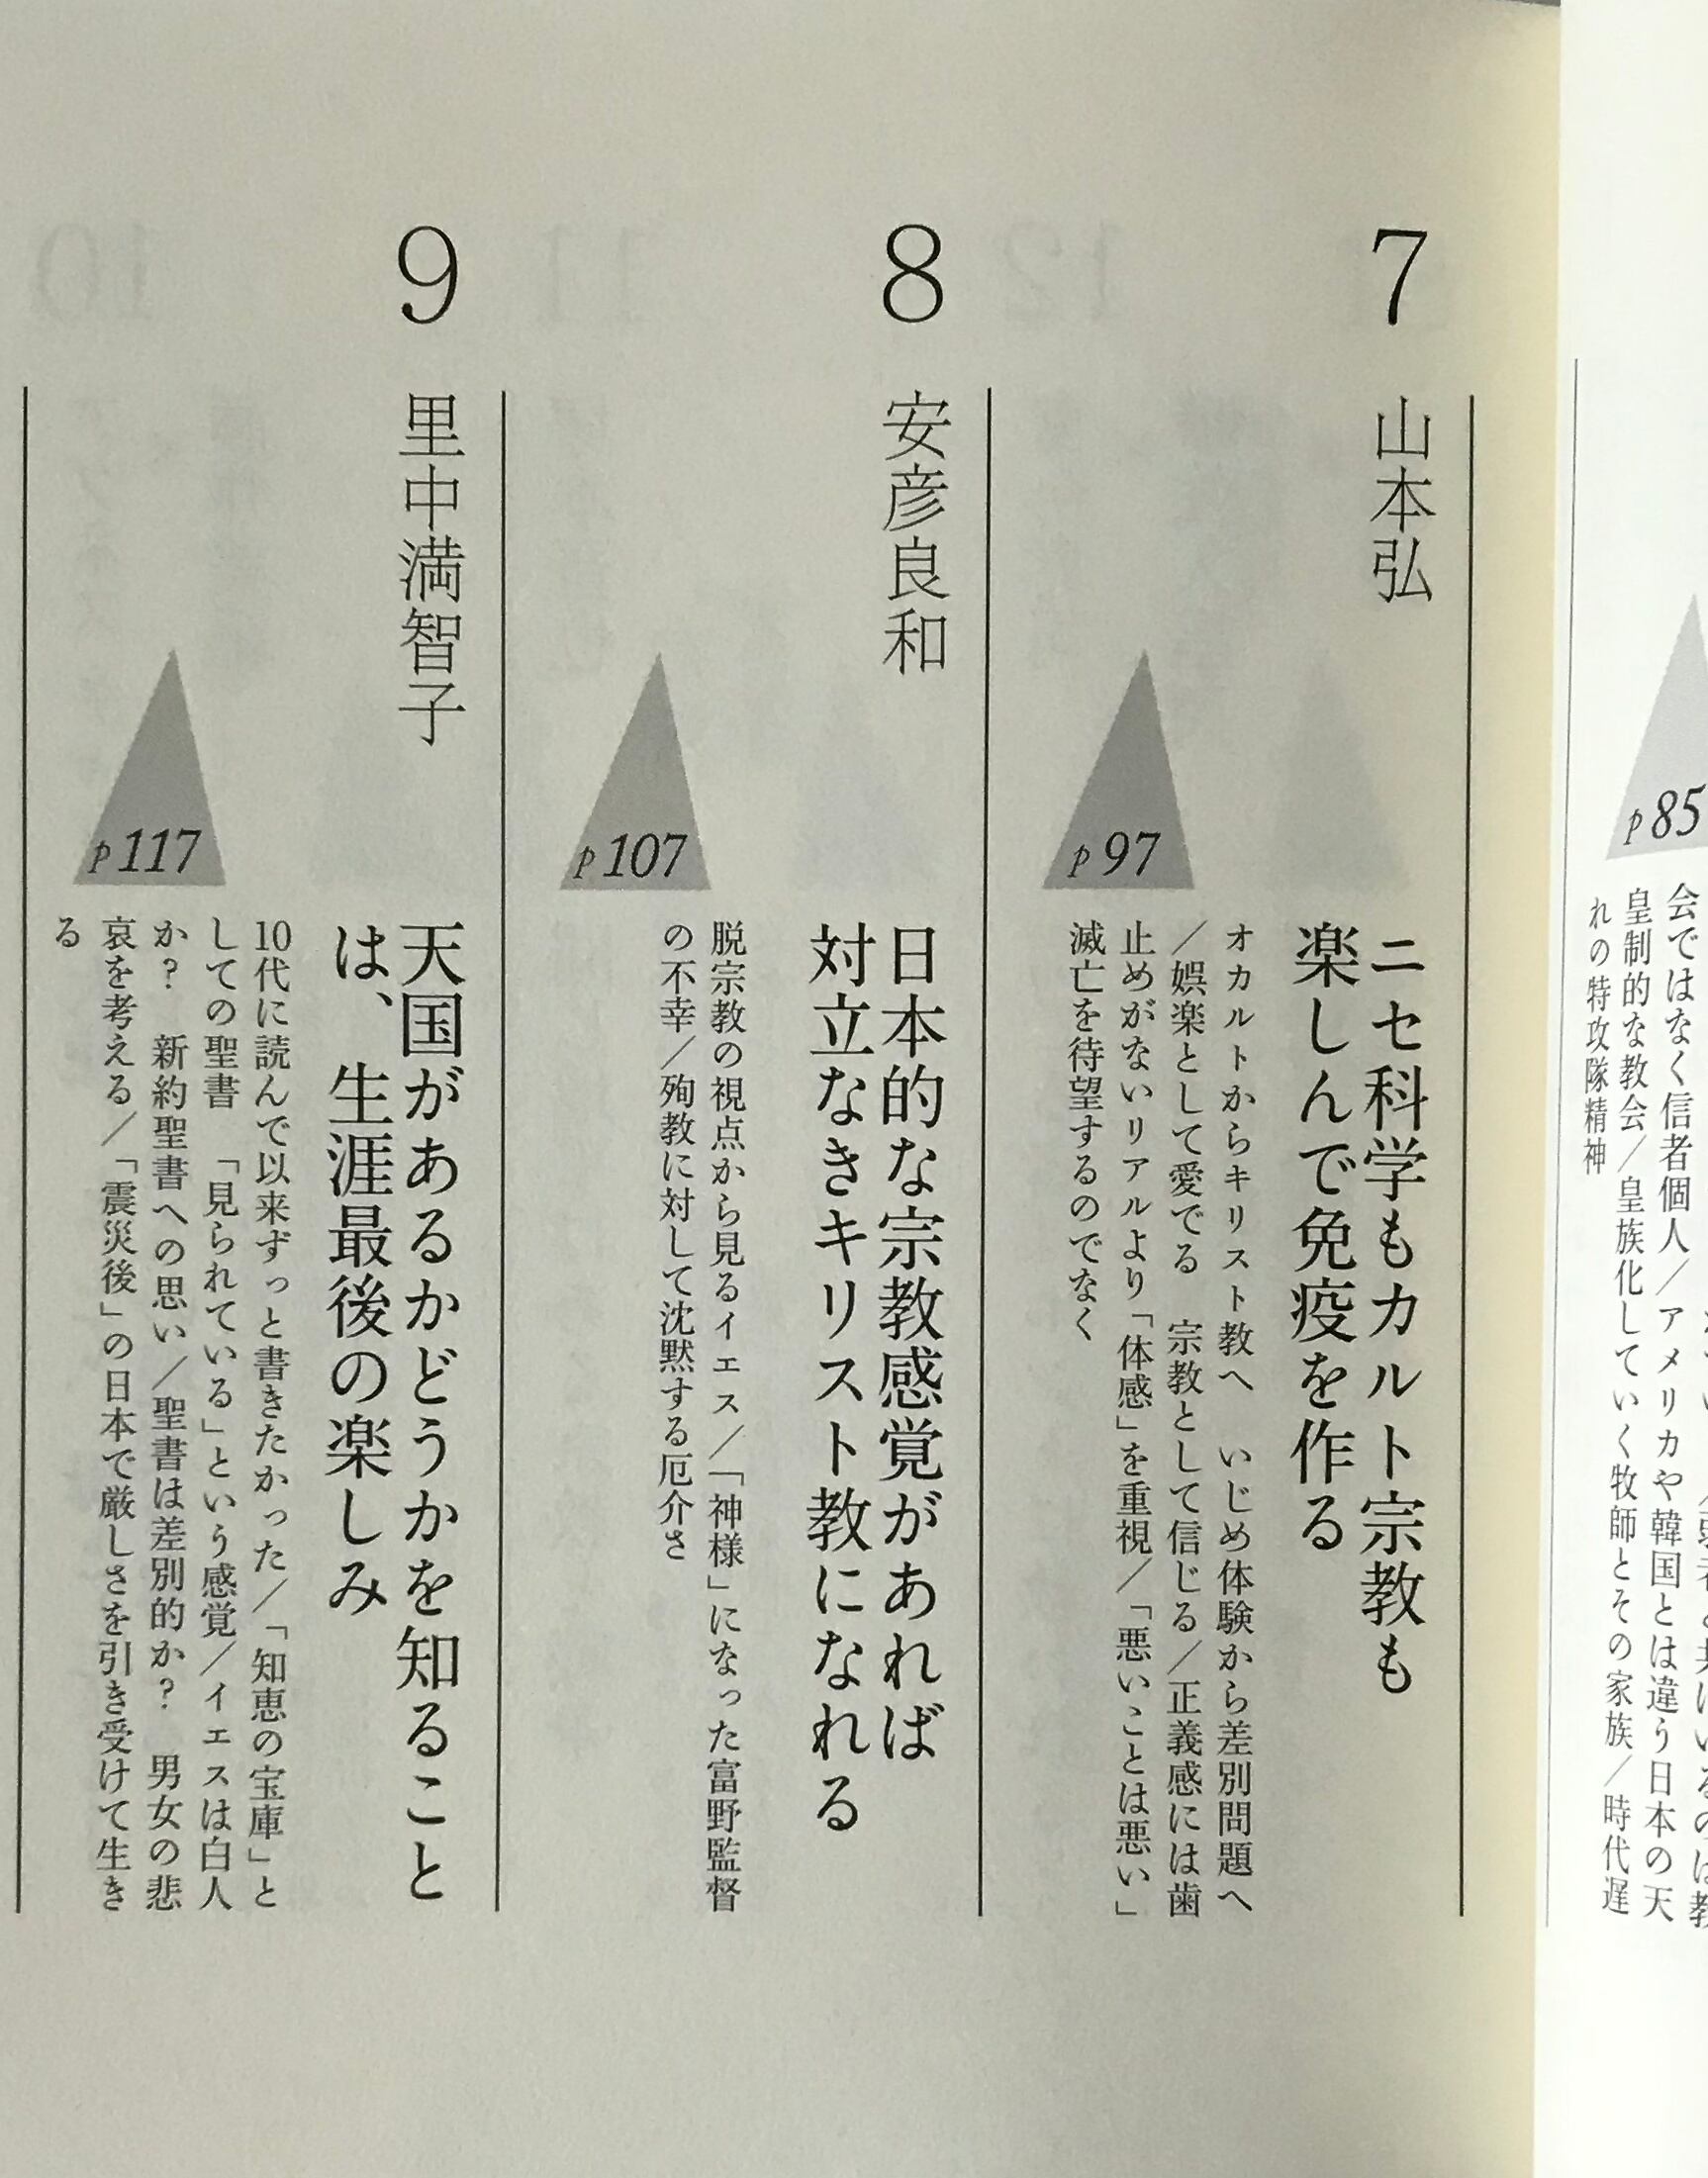 p85
会ではなく信者個人／アメリカや韓国とは違う日本の天
皇制的な教会／皇族化していく牧師とその家族／時代遅
れの特攻隊精神
7
山本弘
ニセ科学もカルト宗教も
楽しんで免疫を作る
p97
オカルトからキリスト教へ　いじめ体験から差別問題へ
／娯楽として愛でる　宗教として信じる／正義感には歯
止めがないリアルより「体感」を重視／「悪いことは悪い」
滅亡を待望するのでなく
8
安彦良和
日本的な宗教感覚があれば
対立なきキリスト教になれる
p107
脱宗教の視点から見るイエス／「神様」になった富野監督
の不幸／殉教に対して沈黙する厄介さ
9
里中満智子
天国があるかどうかを知ること
は、生涯最後の楽しみ
p117
10代に読んで以来ずっと書きたかった／「知恵の宝庫」と
しての聖書　「見られている」という感覚／イエスは白人
か？　新約聖書への思い／聖書は差別的か？　男女の悲
哀を考える／「震災後」の日本で厳しさを引き受けて生き
る